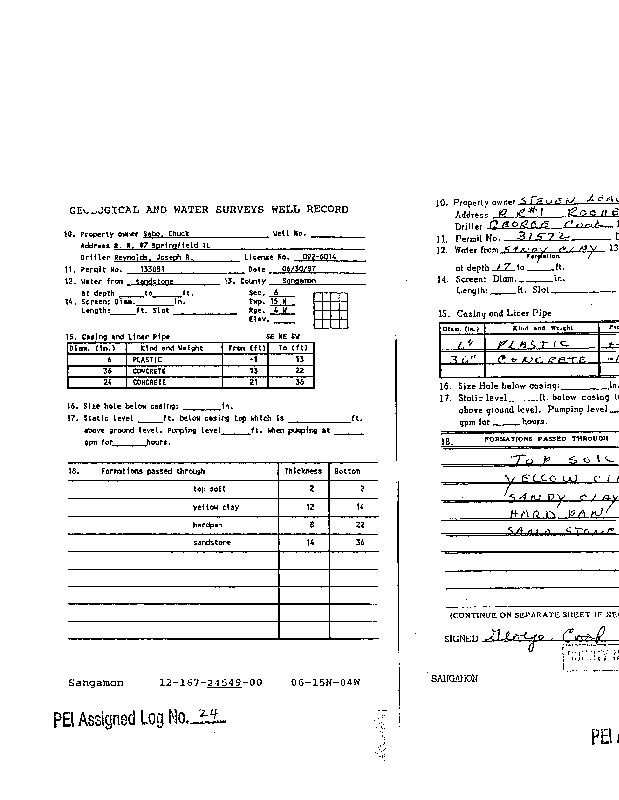 GEOLOGICAL AND WATER SURVEYS WELL RECORD
10. Property owner Sabo, Chuck Well No.
Address R. R. #7 Springfield IL
Driller Reynolds, Joseph R. License No. 092-6014
11. Permit No. 133081 Date 06/30/97
12. Water from sandstone 13. County Sangamon
at depth to ft. Sec. 6
14. Screen: Diam. in. Twp. 15 N
Length: ft. Slot Rge. 4 W
Elev.
15. Casing and Liner Pipe SE NE SW
Diam. (in.) Kind and Weight From (ft) To (ft)
6 PLASTIC -1 13
36 CONCRETE 13 22
24 CONCRETE 21 36
16. Size hole below casing: in.
17. Static level ft. below casing top which is ft.
above ground level. Pumping level ft. when pumping at
gpm for hours.
18. Formations passed through Thickness Bottom
top soil 2 2
yellow clay 12 14
hardpan 8 22
sandstone 14 36
Sangamon 12-167-24549-00 06-15N-04W
PEI Assigned Log No. 24
10. Property owner STEVEN
Address R R#1
Driller GEORGE Cook
11. Permit No. 31572
12. Water from SANDY CLAY 13
Formation
at depth 17 to ft.
14. Screen: Diam. in.
Length: ft. Slot
15. Casing and Liner Pipe
Diam. (in.) Kind and Weight
6" PLASTIC
36" CONCRETE
16. Size Hole below casing: in.
17. Static level ft. below casing
above ground level. Pumping level
gpm for hours.
18. FORMATIONS PASSED THROUGH
TOP SOIL
YELLOW
SANDY CLAY
HARD PAN
SAND STONE
(CONTINUE ON SEPARATE SHEET IF
SIGNED George Cook
SANGAMON
PEI